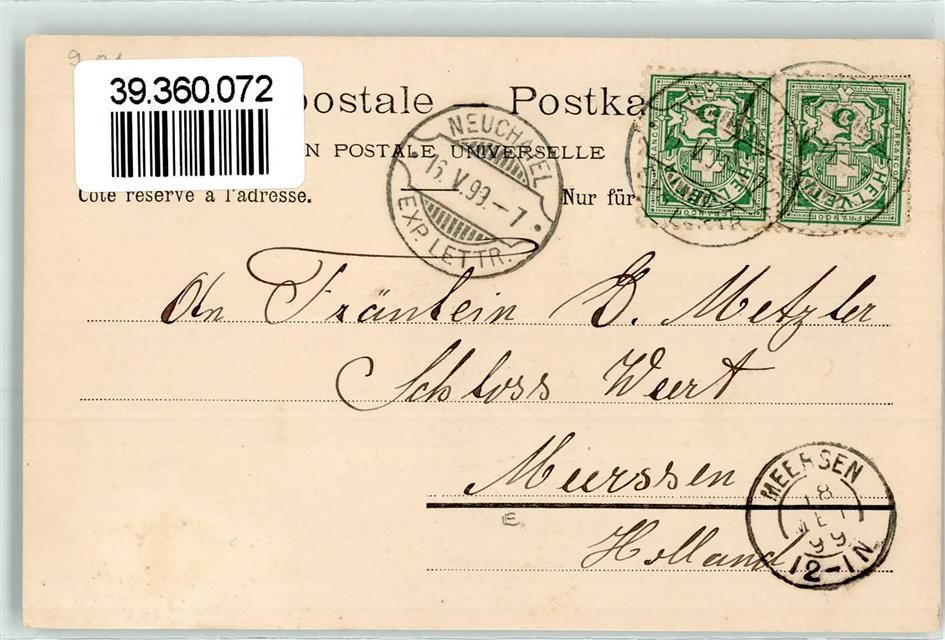 39.360.072
postale – Postka
N POSTALE UNIVERSELLE
Côté réservé à l'adresse. Nur für
NEUCHATEL
16.V.99.–7
EXP. LETTR.
5 5
HELVETIA HELVETIA
FRANCO FRANCO
An Fräulein D. Metzler
Schloss Weert
Meerssen
Holland
MEERSEN
18
MEI
99
12-1N
E